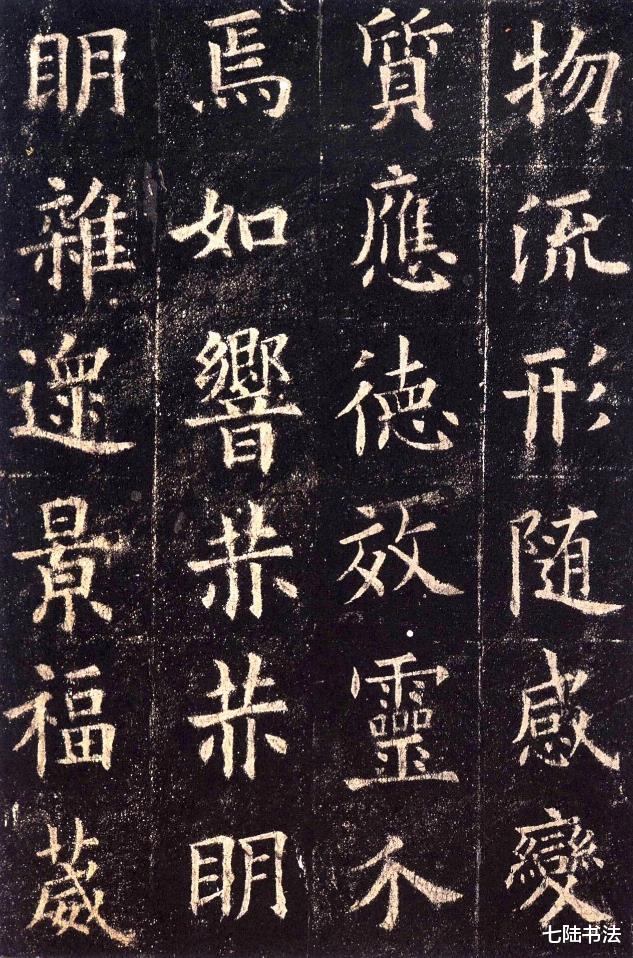 物流形随感變
質應德效靈不
焉如響赫赫明
明雜遝景福葳
七陆书法